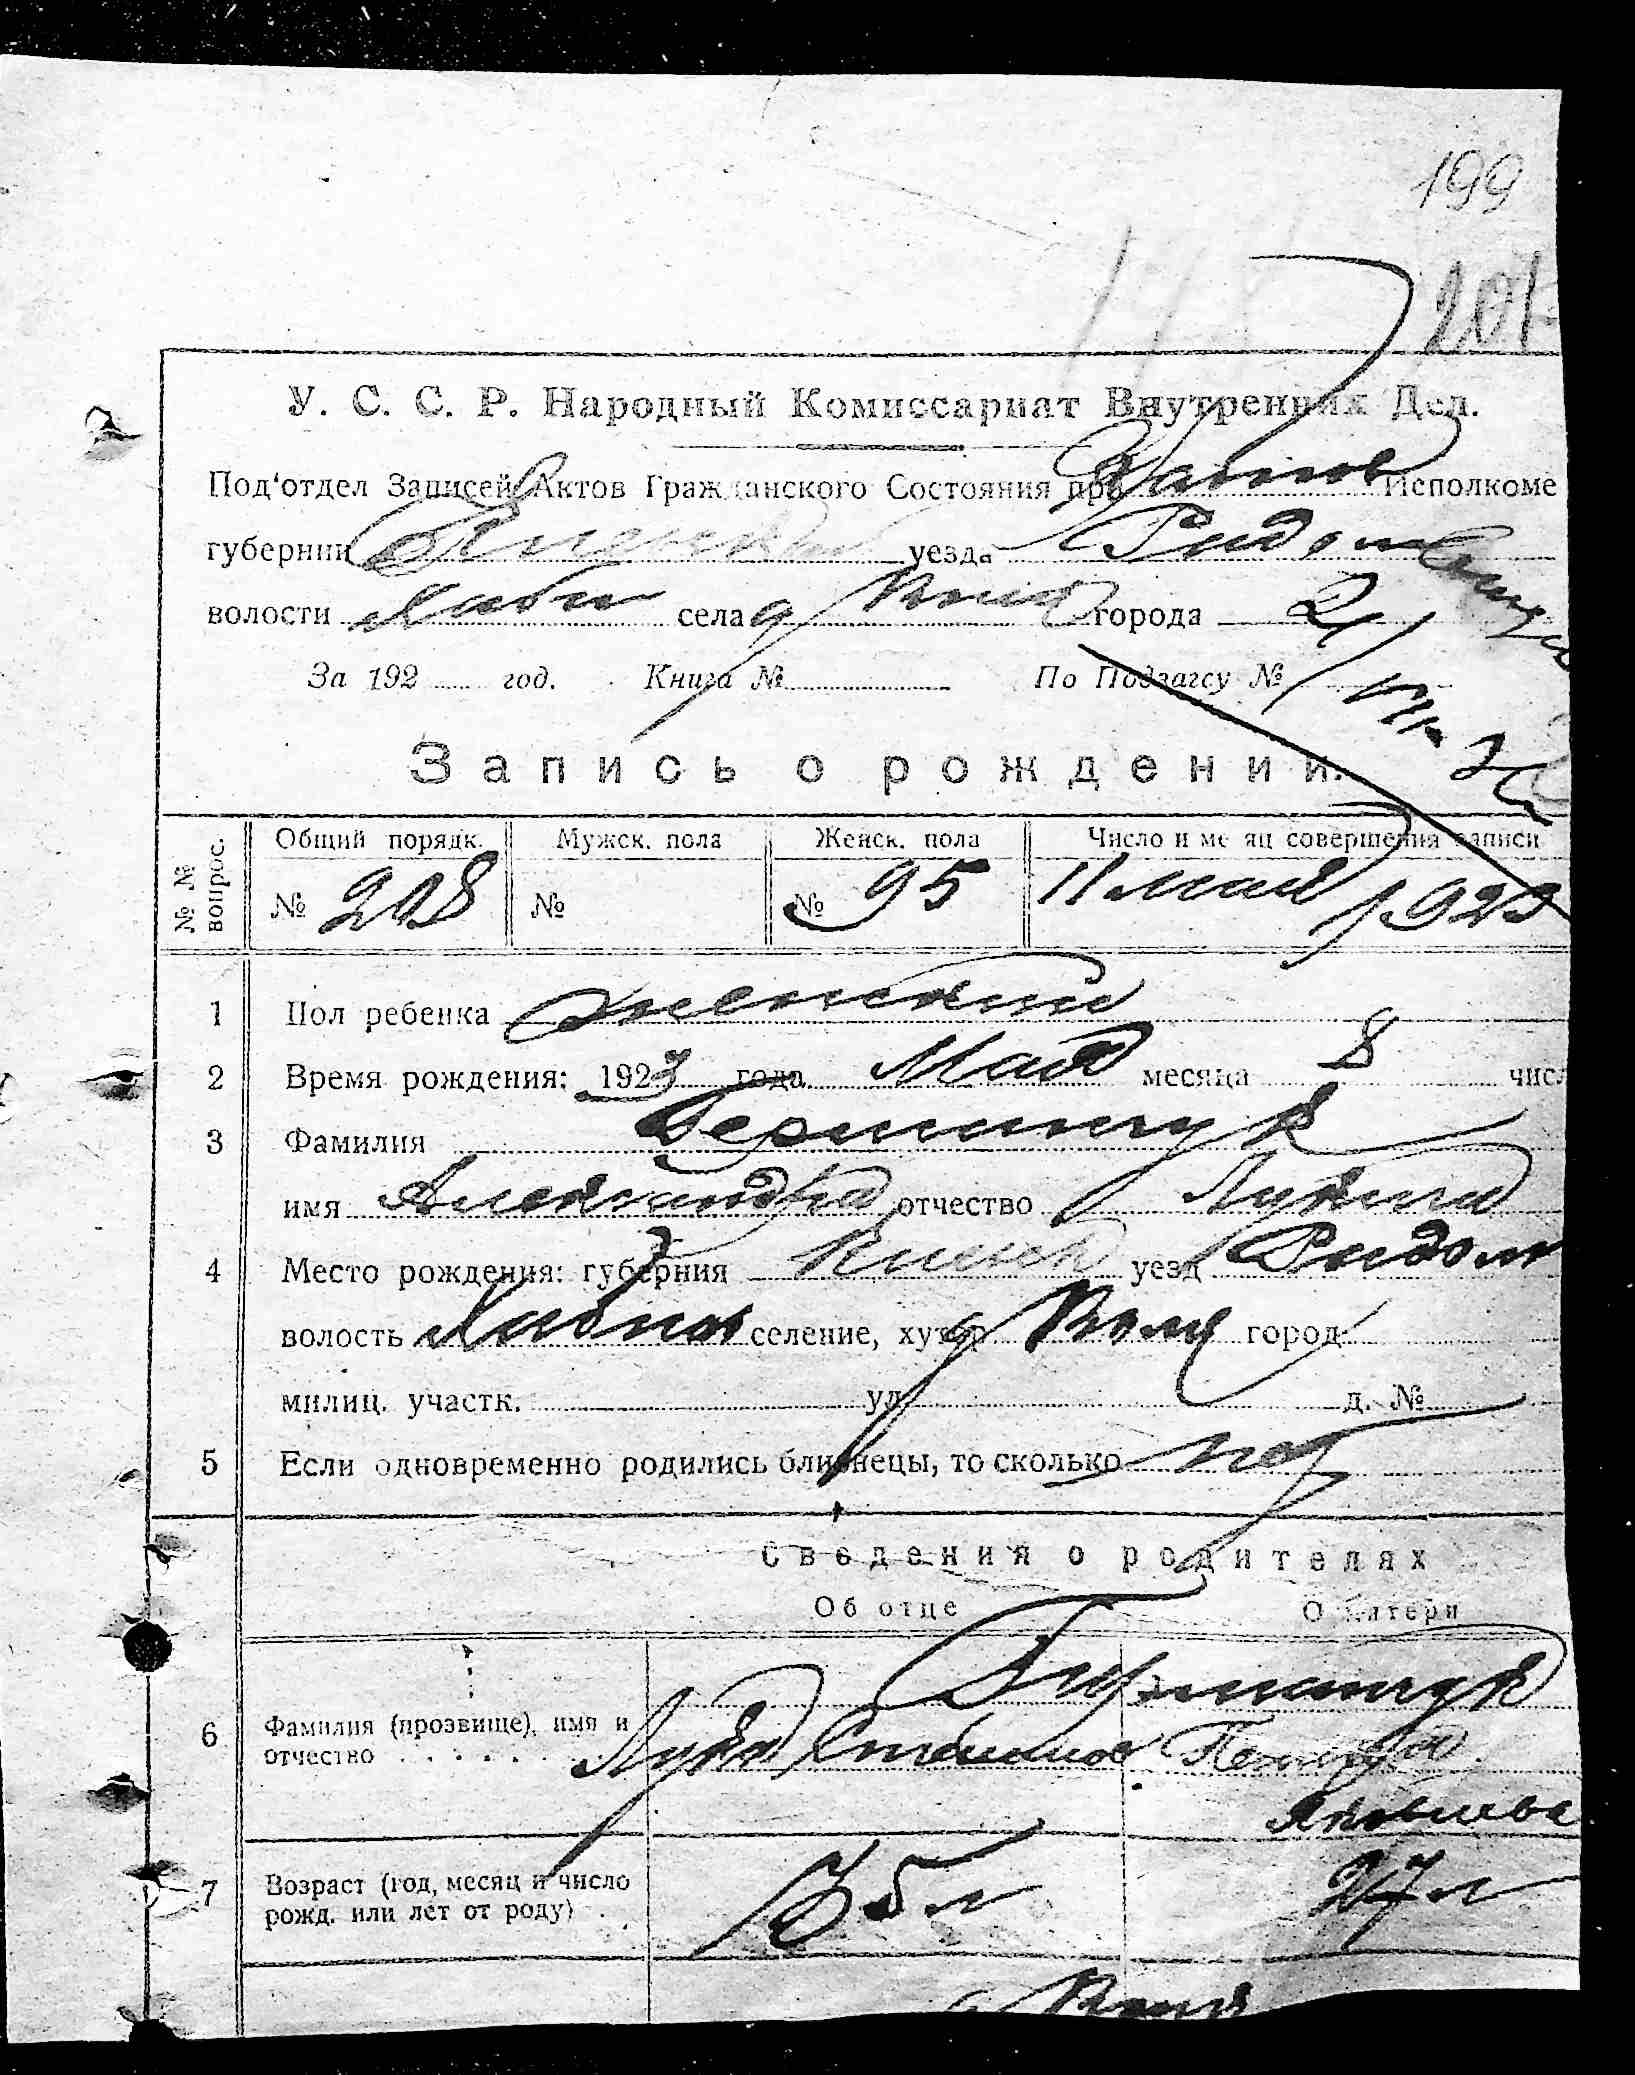 199
201
У. С. С. Р. Народный Комиссариат Внутренних Дел.
Под'отдел Записей Актов Гражданского Состояния при Исполкоме
губернии Киевской уезда Радом
волости Хабн села города
За 192 год. Книга № По Подзагсу №
Запись о рождении.
№№ вопрос. Общий порядк. Мужск. пола Женск. пола Число и месяц совершения записи
№ 208 № № 95 11 мая 1923
1 Пол ребенка женский
2 Время рождения: 1923 года Мая месяца 8 числ
3 Фамилия
имя Александра отчество Лукина
4 Место рождения: губерния Киевск уезд Радом
волость Хабное селение, хутор город
милиц. участк. ул. д. №
5 Если одновременно родились близнецы, то сколько нет
Сведения о родителях
Об отце О матери
6 Фамилия (прозвище), имя и
отчество Лука
Яковлева
7 Возраст (год, месяц и число
рожд. или лет от роду) 35 л 27 л